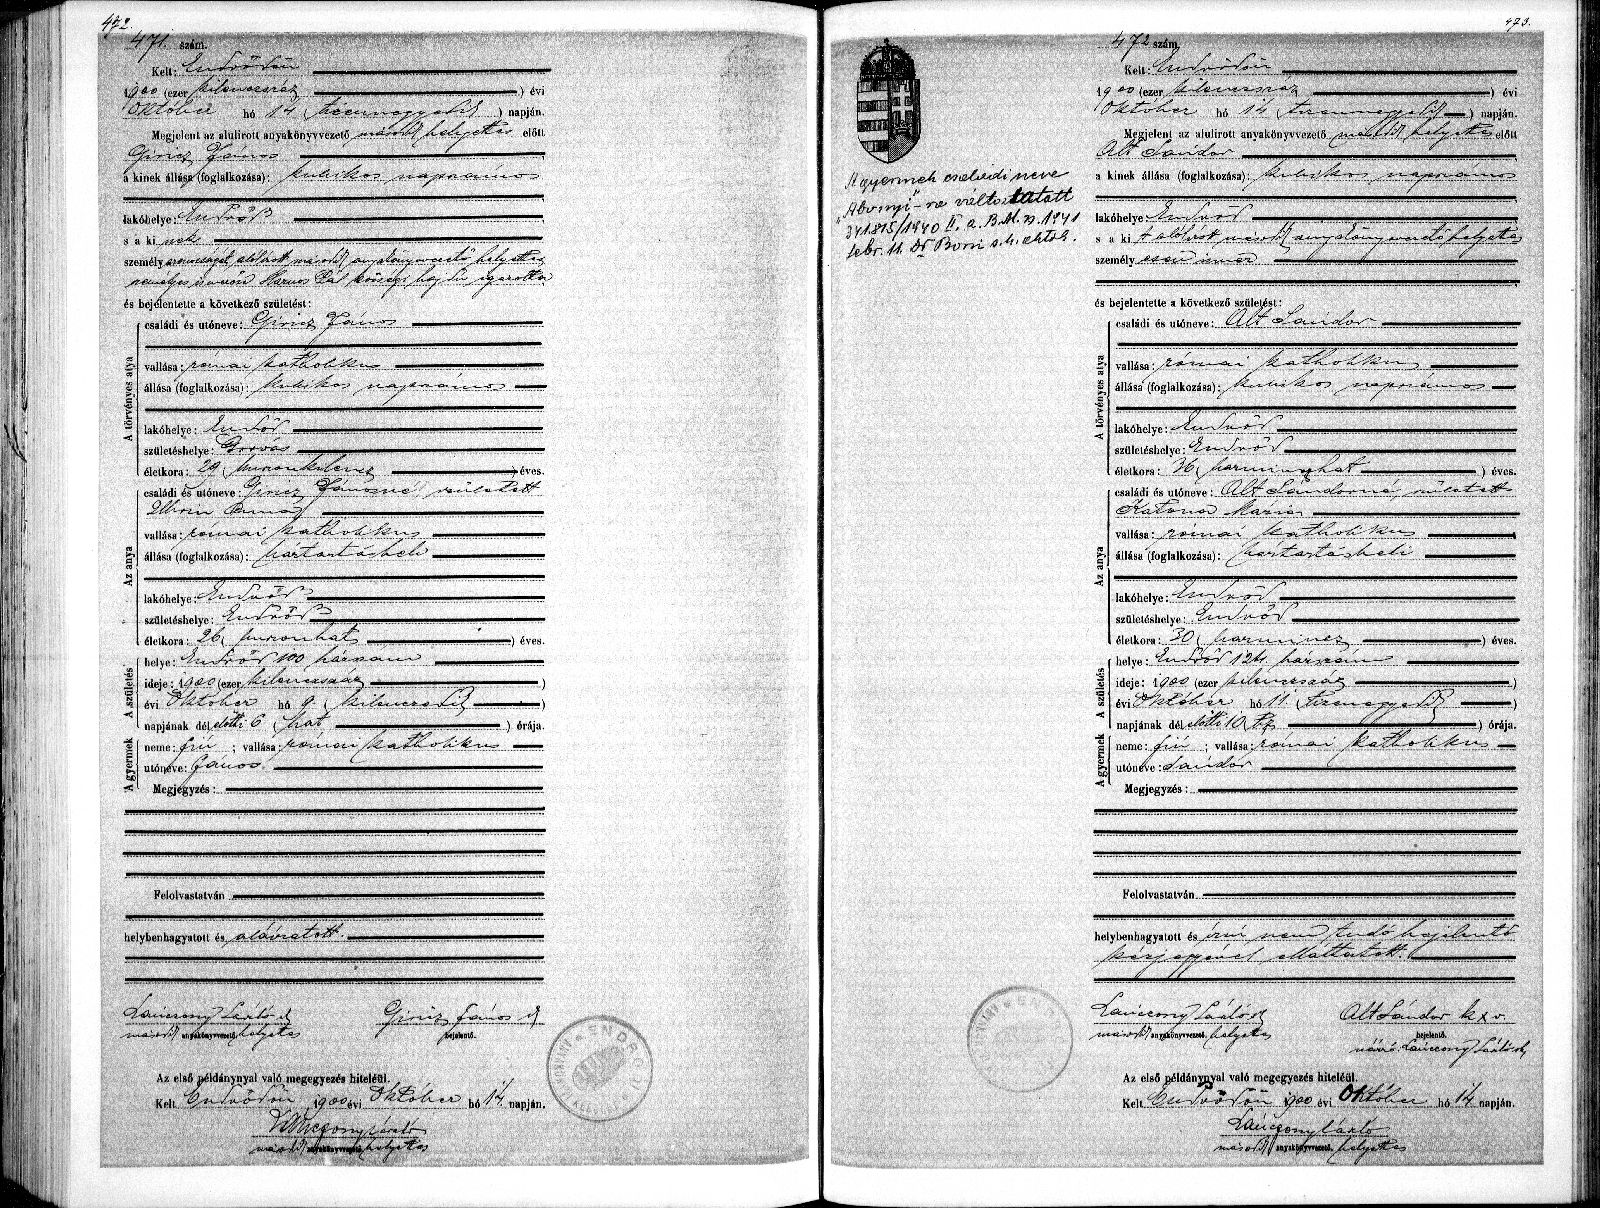 472.
471. szám.
Kelt: Endrődön
1900 (ezer kilenczszáz ) évi
Október hó 14 (tizennegyedik ) napján.
Megjelent az alulirott anyakönyvvezető másod helyettes előtt
Giricz János
a kinek állása (foglalkozása): kubikos napszámos
lakóhelye: Endrőd
s a ki nek
személy azonosságát alólirott másod anyakönyvvezető helyettes
személyes Hamos Pál községi igazolta
és bejelentette a következő születést:
A törvényes atya
családi és utóneve: Giricz János
vallása: római katholikus
állása (foglalkozása): kubikos napszámos
lakóhelye: Endrőd
születéshelye:
életkora: 29 (huszonkilencz ) éves.
Az anya
családi és utóneve: Giricz Jánosné született
Uhrin Anna
vallása: római katholikus
állása (foglalkozása): háztartásbeli
lakóhelye: Endrőd
születéshelye: Endrőd
életkora: 26 (huszonhat ) éves.
A születés
helye: Endrőd 100 házszám
ideje: 1900 (ezer kilenczszáz )
évi Október hó 9 (kilenczedik )
napjának dél előtti 6 (hat ) órája.
A gyermek
neme: fiú ; vallása: római katholikus
utóneve: János.
Megjegyzés:
Felolvastatván
helybenhagyatott és aláiratott.
Lánczony László
másod anyakönyvvezető helyettes
Giricz János
bejelentő.
Az első példánynyal való megegyezés hiteléül.
Kelt Endrődön 1900 évi Október hó 14 napján.
Lánczony László
másod anyakönyvvezető helyettes
473.
472 szám.
A gyermek családi neve
"Abonyi"-ra változtatott
341.815/1940 II. a. B.M. sz. 1941
febr. 11. Dr Boni s.k.
Kelt: Endrődön
1900 (ezer kilenczszáz ) évi
Október hó 14 (tizennegyedik ) napján.
Megjelent az alulirott anyakönyvvezető másod helyettes előtt
Alt Sándor
a kinek állása (foglalkozása): kubikos napszámos
lakóhelye: Endrőd
s a ki t alólirt másod anyakönyvvezető helyettes
személy esen ismer
és bejelentette a következő születést:
A törvényes atya
családi és utóneve: Alt Sándor
vallása: római katholikus
állása (foglalkozása): kubikos napszámos
lakóhelye: Endrőd
születéshelye: Endrőd
életkora: 36 (harminczhat ) éves.
Az anya
családi és utóneve: Alt Sándorné, született
Katona Maria
vallása: római katholikus
állása (foglalkozása): háztartásbeli
lakóhelye: Endrőd
születéshelye: Endrőd
életkora: 30 (harmincz ) éves.
A születés
helye: Endrőd 124 házszám
ideje: 1900 (ezer kilenczszáz )
évi Október hó 11 (tizenegyedik )
napjának dél előtti 10 (tíz ) órája.
A gyermek
neme: fiú ; vallása: római katholikus
utóneve: Sándor
Megjegyzés:
Felolvastatván
helybenhagyatott és írni nem tudó bejelentő
kézjegyével elláttatott.
Lánczony László
másod anyakönyvvezető helyettes
Alt Sándor k x v.
bejelentő.
névíró Lánczony László
Az első példánynyal való megegyezés hiteléül.
Kelt Endrődön 1900 évi Október hó 14 napján.
Lánczony László
másod anyakönyvvezető helyettes